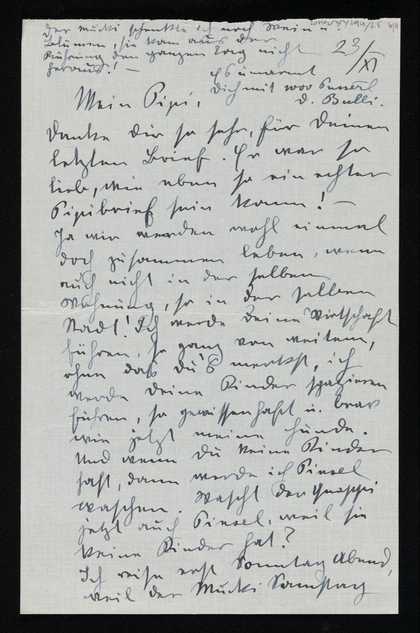 Der Mucki schenkte ich noch Wein u.
Blumen, sie kam aus der
Rührung den ganzen Tag nicht
heraus! —
23/XI
Es umarmt
Dich mit 1000 Busserl
d. Bulli.
Mein Pipi,
Danke Dir so sehr, für Deinen
letzten Brief. Er war so
lieb, wie eben so ein echter
Pipibrief sein kann! —
Ja wir werden wohl einmal
doch zusammen leben, wenn
auch nicht in der selben
Wohnung, so in der selben
Stadt! Ich werde Deine Wirtschaft
führen, so ganz von weitem,
ohne daß Du's merkst, ich
werde Deine Kinder spazieren
führen, so gewissenhaft u. brav
wie jetzt meine Hunde.
Und wenn Du keine Kinder
hast, dann werde ich Pinsel
waschen. Wascht der
jetzt auch Pinsel, weil sie
keine Kinder hat?
Ich reise erst Sonntag Abend,
weil der Mucki Samstag